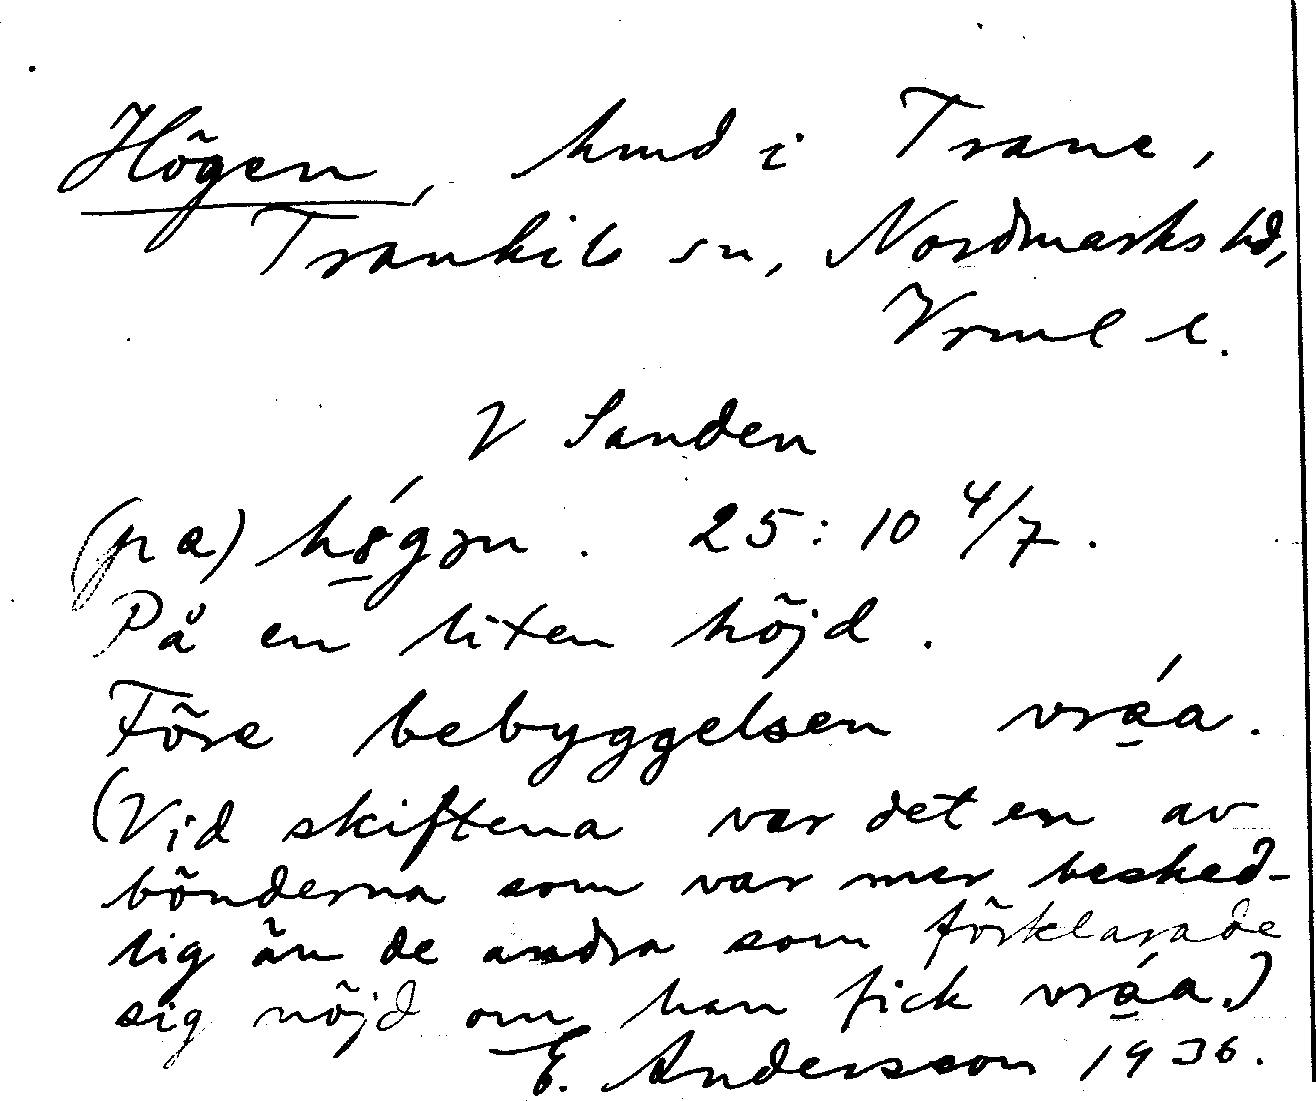 Högen, hmd i Trane,
Trankils sn, Nordmarks hd,
Vrml l.
V Sanden
(pa) högen. 25:10 4/7.
På en liten höjd.
Före bebyggelsen vráa.
(Vid skiftena var det en av
bönderna som var mer besked-
lig än de andra som förklarade
sig nöjd om han fick vráa.)
E. Andersson 1936.